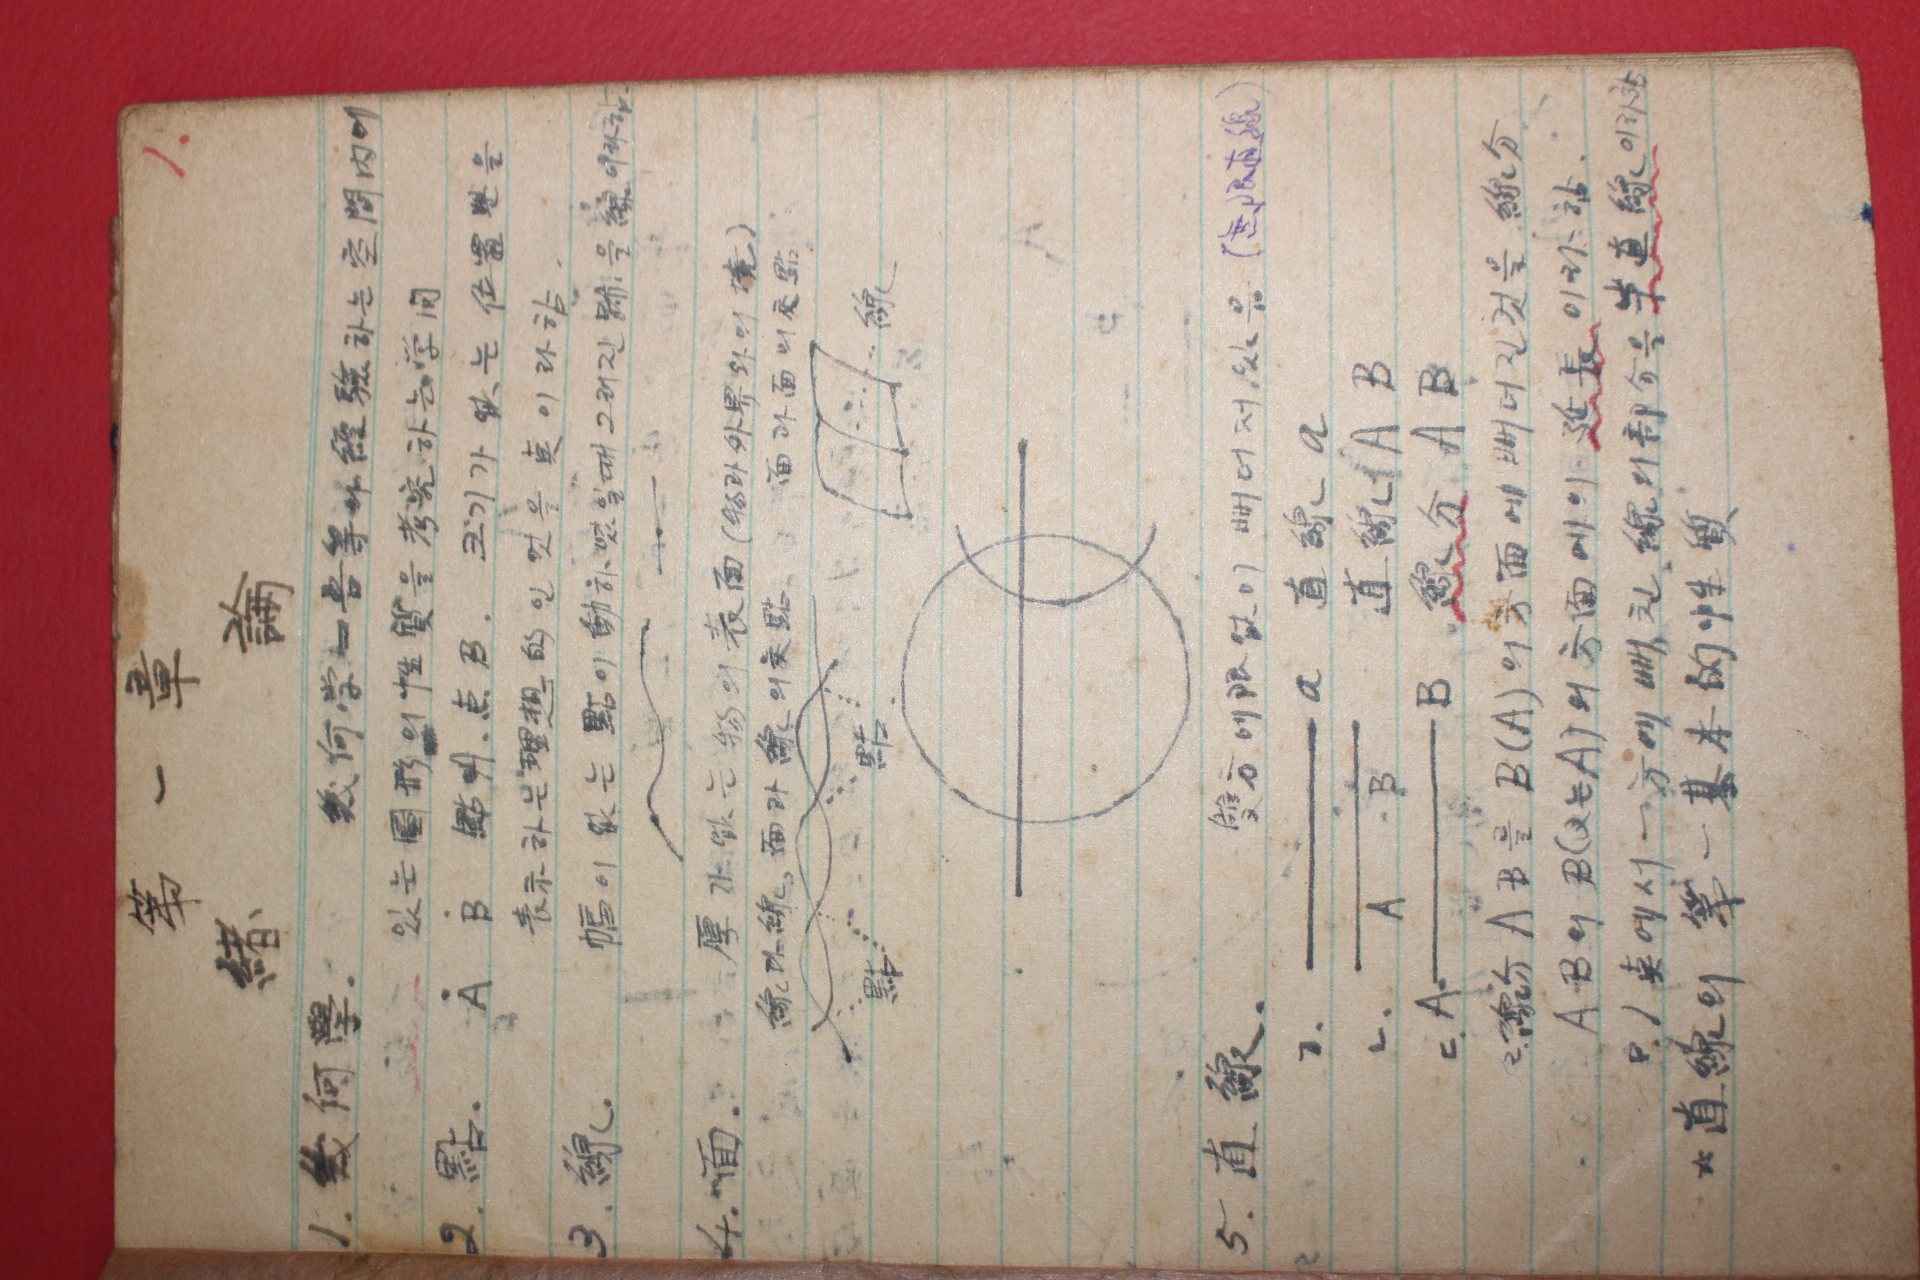 1.
第一章
緖論
1. 幾何學. 幾何学—吾等가 經驗하는 空間内에
있는 圖形의 性質을 考究하는 学问
2. 點. A B 點A. 点B. 크기가 없는 位置만을
表示하는 理想的인 것을 点이라함.
3. 線. 幅이 없는 點이 動하였을때 그려진 跡을 線이라함.
4. 面. 厚가 없는 物의 表面(物과 外界와의 境)
線과 線, 面과 線의 交點. 面과 面의 交點
點 點 線
5. 直線. 雙方에 限없이 뻐더저 있음 (無限直線)
ㄱ. a 直線 a
ㄴ. A B 直線 A B
ㄷ. A B 線分 A B
ㄹ. 線分 A B를 B(A)의 方面에 뻐더진것을 線分
A B의 B(又는A)의 方面에의 延長이라함.
ㅁ. 1 点에서 一方에 뻐친 線의 部分을 半直線이라함
* 直線의 第一基本的性質